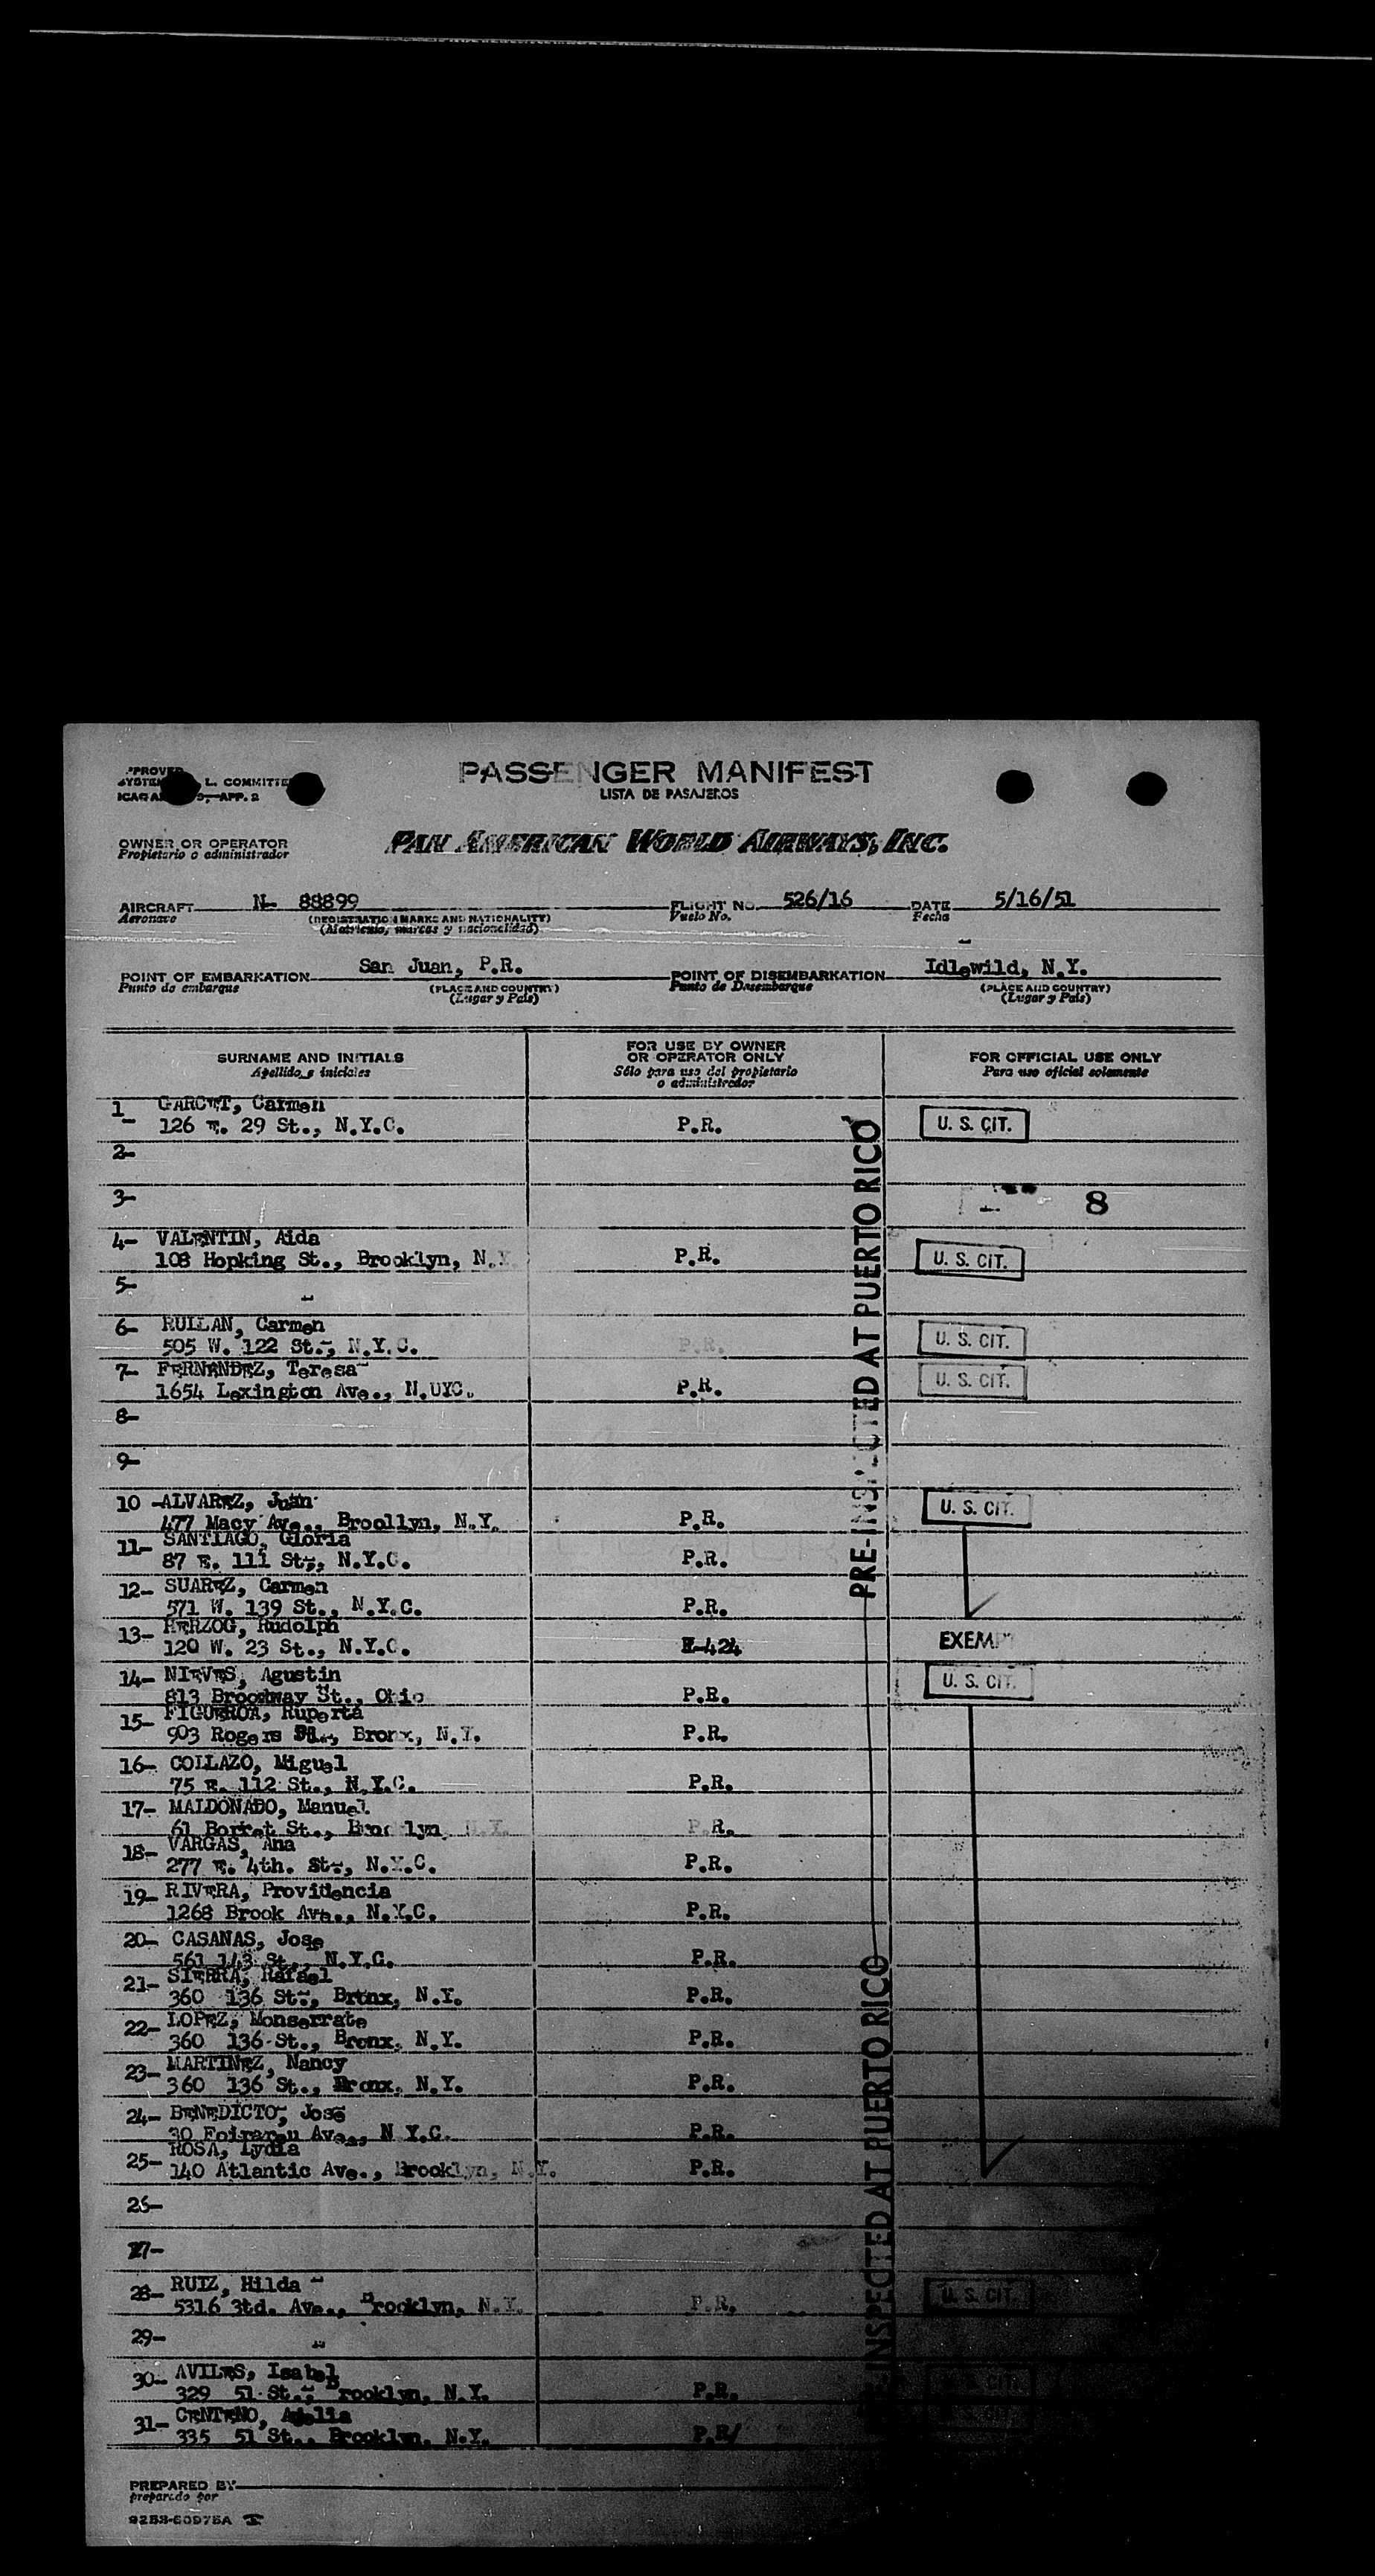 PASSENGER MANIFEST
LISTA DE PASAJEROS
L. COMMITTEE
APP. 2
OWNER OR OPERATOR
Propietario o administrador
PAN AMERICAN WORLD AIRWAYS, INC.
AIRCRAFT N- 88899 FLIGHT NO. 526/16 DATE 5/16/51
Aeronave (REGISTRATION MARKS AND NATIONALITY) Vuelo No. Fecha
(Matricula, marcas y nacionalidad)
POINT OF EMBARKATION San Juan, P.R. POINT OF DISEMBARKATION Idlewild, N.Y.
Punto de embarque (PLACE AND COUNTRY) Punto de Desembarque (PLACE AND COUNTRY)
(Lugar y País) (Lugar y País)
SURNAME AND INITIALS
Apellido e iniciales
FOR USE BY OWNER
OR OPERATOR ONLY
Sólo para uso del propietario
o administrador
FOR OFFICIAL USE ONLY
Para uso oficial solamente
1- Carmen
126 E. 29 St., N.Y.C. P.R. U. S. CIT.
2-
3- 8
4- VALENTIN, Aida
108 Hopking St., Brooklyn, N.Y. P.R. U. S. CIT.
5-
6- RUILAN, Carmen
505 W. 122 St., N.Y.C. P.R. U. S. CIT.
7- FERNANDEZ, Teresa
1654 Lexington Ave., N.UYC. P.R. U. S. CIT.
8-
9-
10 -ALVAREZ, Juan
477 Macy Ave., Broollyn, N.Y. P.R. U. S. CIT.
11- SANTIAGO, Gloria
87 E. 111 St., N.Y.C. P.R.
12- SUAREZ, Carmen
571 W. 139 St., N.Y.C. P.R.
13- HERZOG, Rudolph
120 W. 23 St., N.Y.C. I-424 EXEMPT
14- NIEVES, Agustin
813 Broodway St., Ohio P.R. U. S. CIT.
15- FIGUEROA, Ruperta
903 Rogers Bronx, N.Y. P.R.
16- COLLAZO, Miguel
75 E. 112 St., N.Y.C. P.R.
17- MALDONADO, Manuel
61 Borret St., N.Y. P.R.
18- VARGAS, Ana
277 E. 4th. St., N.Y.C. P.R.
19- RIVERA, Providencia
1268 Brook Ave., N.Y.C. P.R.
20- CASANAS, Jose
561 143 St., N.Y.C. P.R.
21- SIERRA, Rafael
360 136 St., Brtnx, N.Y. P.R.
22- LOPEZ, Monserrate
360 136 St., Bronx, N.Y. P.R.
23- MARTINEZ, Nancy
360 136 St., Bronx, N.Y. P.R.
24- BENEDICTO, Jose
30 Ave., N.Y.C. P.R.
25- ROSA, Lydia
140 Atlantic Ave., Brooklyn, N.Y. P.R.
26-
27-
28- RUIZ, Hilda
5316 3td. Ave., Brooklyn, N.Y. P.R. U. S. CIT.
29-
30- AVILES, Isabel
329 51 St., Brooklyn, N.Y. P.R.
31- CENTENO, Adelia
335 51 St., Brooklyn, N.Y. P.R/
PRE-INSPECTED AT PUERTO RICO
PRE-INSPECTED AT PUERTO RICO
PREPARED BY
preparado por